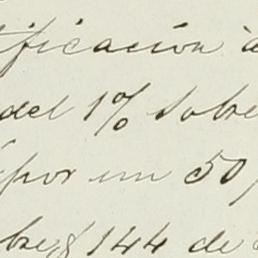 ificación d
del 1% sobre
por un 50
bre $ 144 de